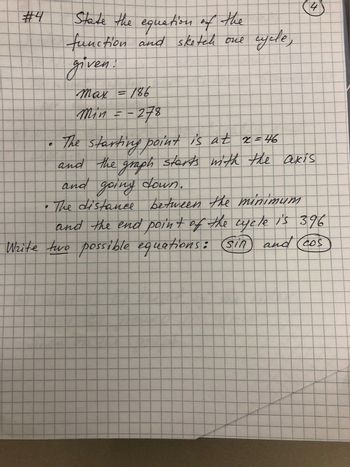 4
#4 State the equation of the
function and sketch one cycle,
given:
max = 186
min = -278
• The starting point is at x = 46
and the graph starts with the axis
and going down.
• The distance between the minimum
and the end point of the cycle is 396
Write two possible equations: sin and cos